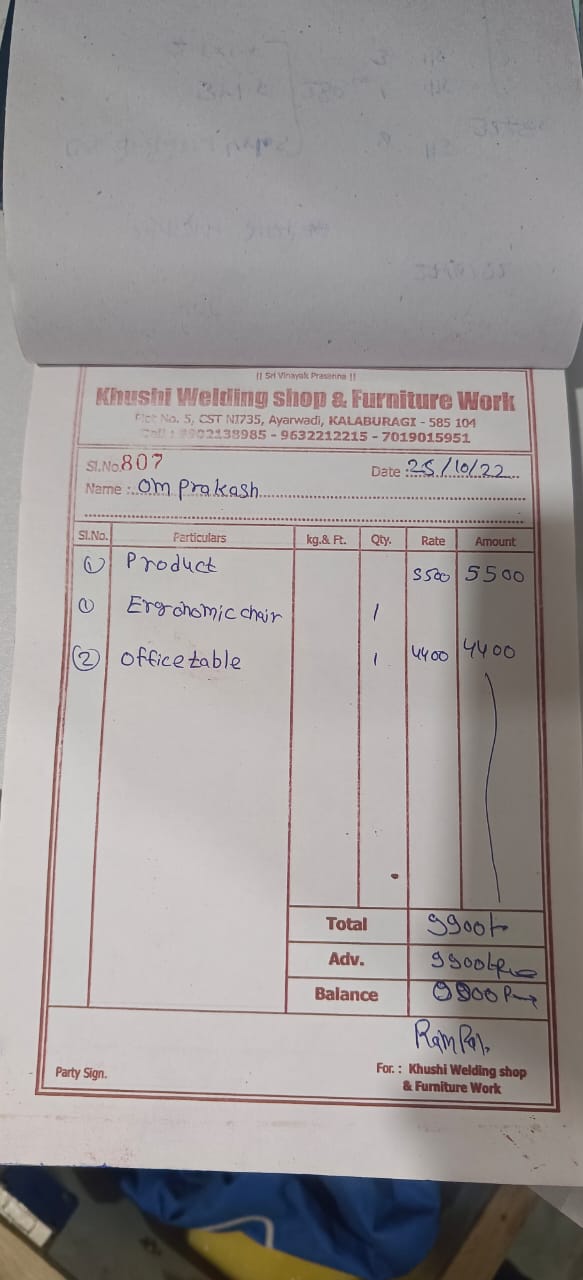 || Sri Vinayak Prasanna ||
Khushi Welding shop & Furniture Work
Plot No. 5, CST N1735, Ayarwadi, KALABURAGI - 585 104
Cell : 9902138985 - 9632212215 - 7019015951
Sl.No. 807
Date : 25/10/22
Name : Om Prakash
Sl.No. Particulars kg.& Ft. Qty. Rate Amount
① Product 5500 5500
① Ergonomic chair 1
② Office table 1 4400 4400
Total 9900
Adv. 9900
Balance
Party Sign.
For. : Khushi Welding shop
& Furniture Work